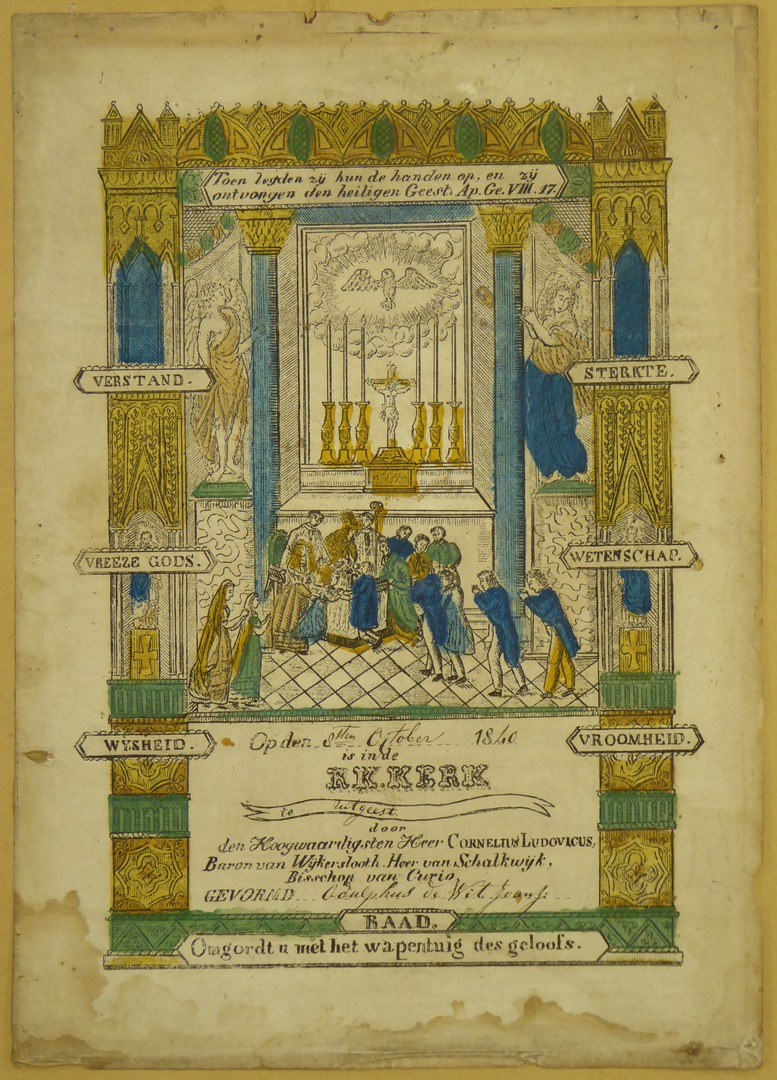 Toen legden zÿ hun de handen op, en zÿ
ontvongen den heiligen Geest. Ap. Ge. VIII. 17.
VERSTAND.
STERKTE.
VREEZE GODS.
WETENSCHAP.
WYSHEID.
VROOMHEID.
Op den 8sten October 1840
is in de
RK. KERK
te Uitgeest
door
den Hoogwaardigsten Heer CORNELIUS LUDOVICUS,
Baron van Wÿkerslooth, Heer van Schalkwÿk,
Bisschop van Curio,
GEVORMD Odulphus de Wit
RAAD.
Omgordt u met het wapentuig des geloofs.